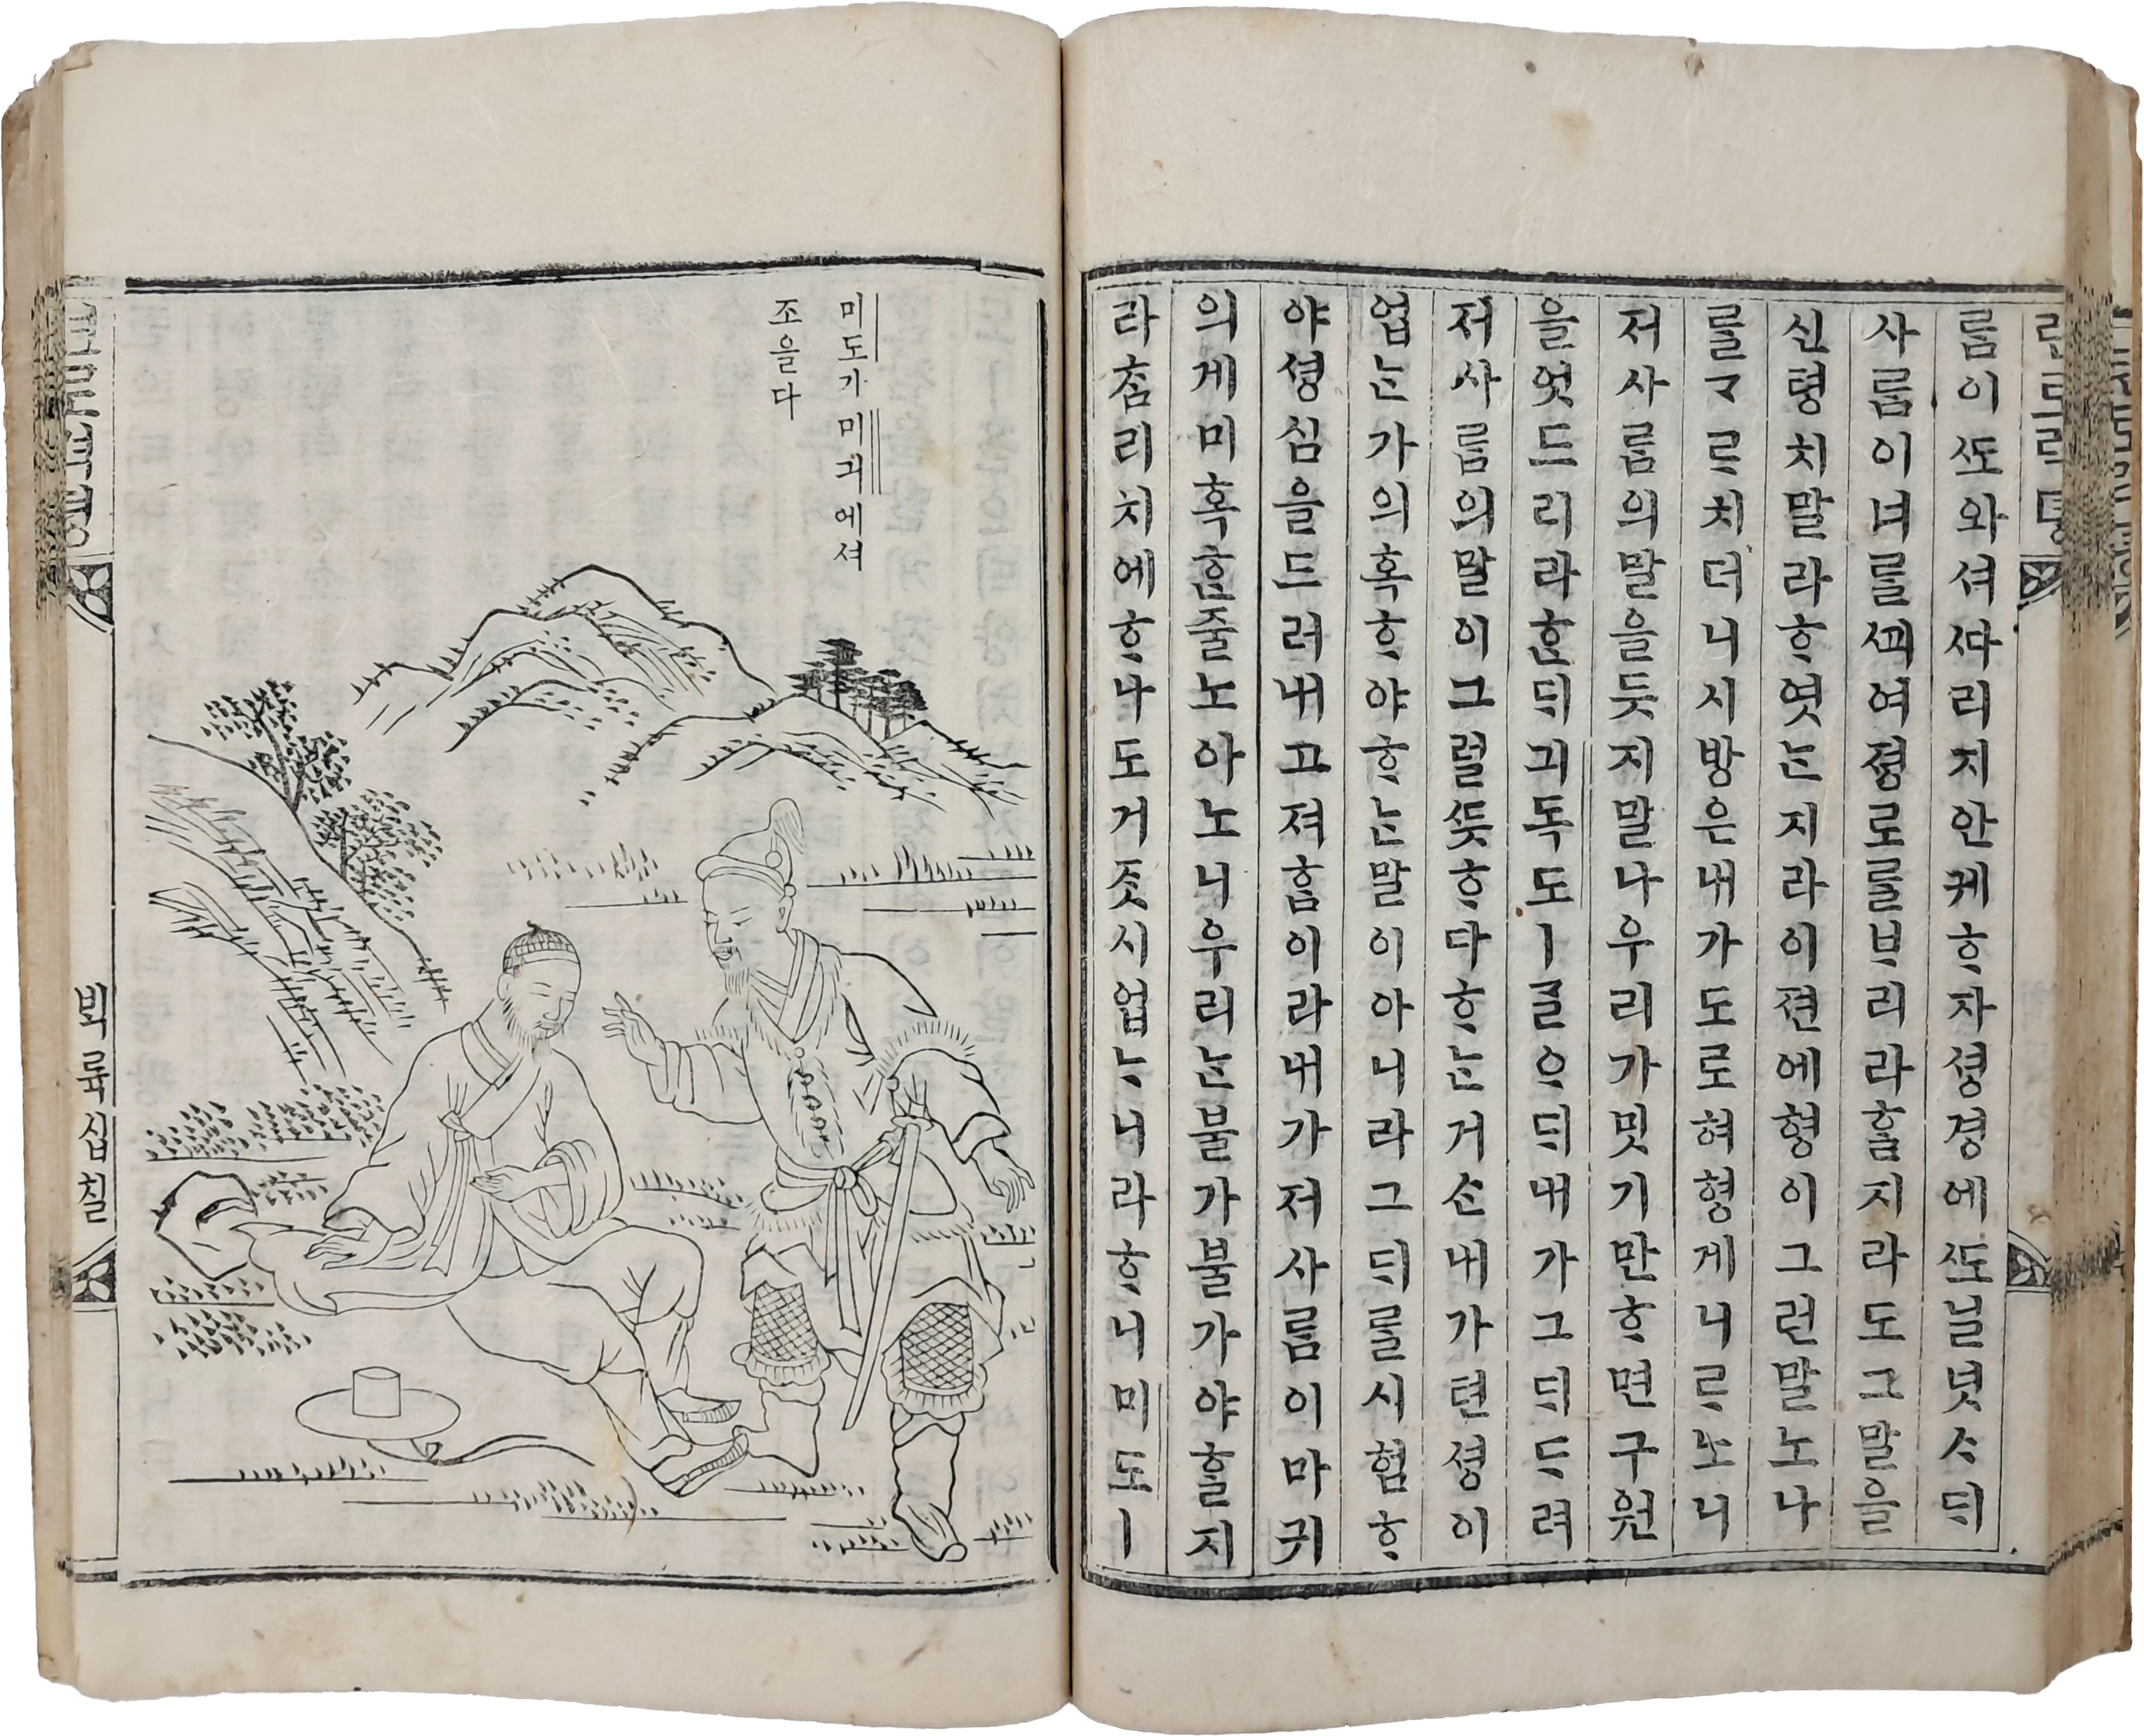 름이ᄯᅩ와셔ᄯᅡ리지안케ᄒᆞ자셩경에ᄯᅩ닐넛ᄉᆞ되
사름이너를ᄭᅬ여졍로를ᄇᆞ리라ᄒᆞᆯ지라도그말을
신텽치말라ᄒᆞ엿ᄂᆞᆫ지라이젼에형이그런말노나
를ᄀᆞᄅᆞ치더니시방은내가도로혀형게니ᄅᆞ노니
저사름의말을듯지말나우리가밋기만ᄒᆞ면구원
을엇드리라ᄒᆞᆫ되긔독도ㅣᄀᆞᆯᄋᆞ되내가그되ᄃᆞ려
저사름의말이그럴ᄯᅳᆺᄒᆞ다ᄒᆞᄂᆞᆫ거슨내가텬셩이
업ᄂᆞᆫ가의혹ᄒᆞ야ᄒᆞᄂᆞᆫ말이아니라그되를시험ᄒᆞ
야셩심을드러내고져ᄒᆞᆷ이라내가저사름이마귀
의게미혹ᄒᆞᆫ줄노아노니우리ᄂᆞᆫ불가불가야ᄒᆞᆯ지
라ᄎᆞᆷ리치에ᄒᆞ나도거ᄌᆞᆺ시업ᄂᆞ니라ᄒᆞ니미도ㅣ
미도가미긔에셔
조을다
빅륙십칠